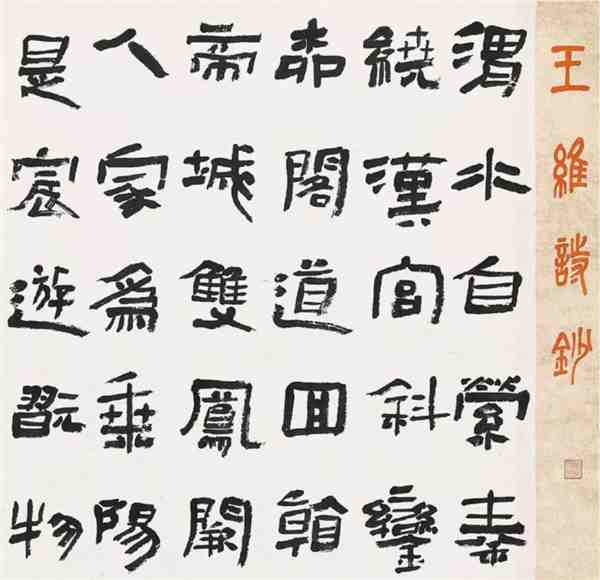 王維詩鈔
渭水自縈秦
繞漢宮斜鑾
桺閣道回看
帝城雙鳳闕
人家爲乘陽
是宸遊翫物